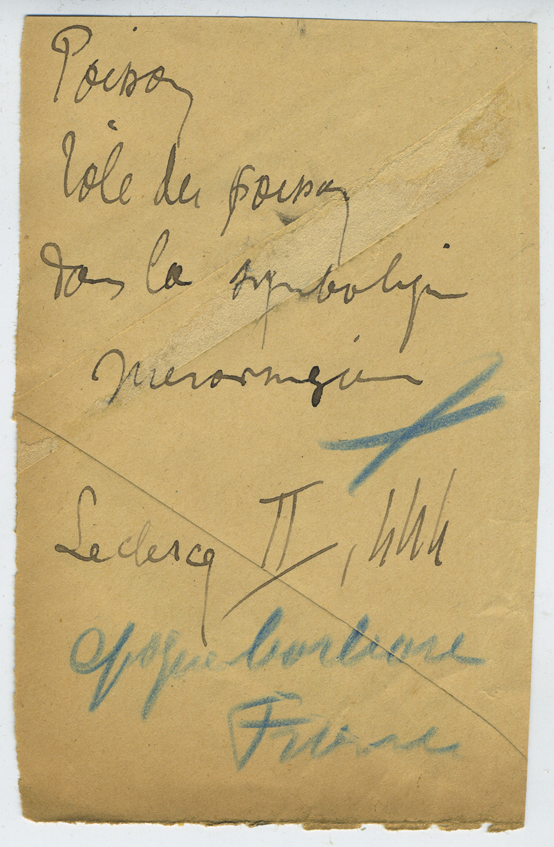 Poisson
Rôle du poisson
dans la symbolique
mérovingienne
Leclercq II, 444
époque barbare
France